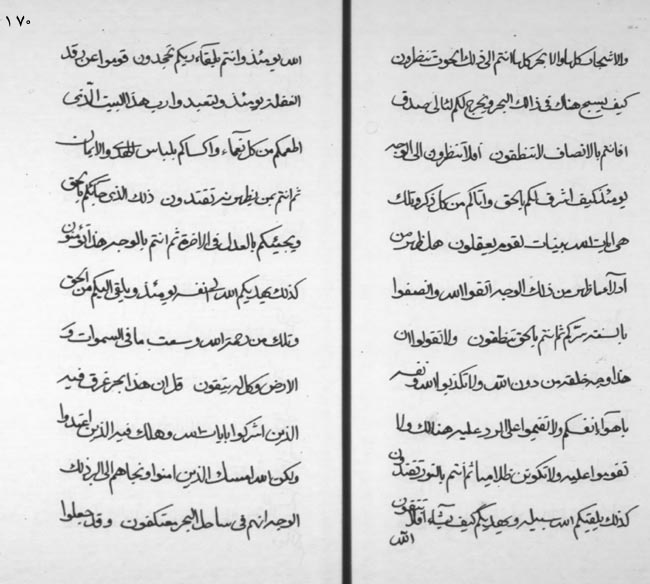 ١٧٠
والاشجار كلها والابحر كلها انتم الى ذلك الحوت تنظرون
كيف يسبح هناك فى ذالك البحر ويخرج لكم لئالى صدق
افانتم بالانصاف لا تنطقون افلا تنظرون الى الوجه
يومئذ كيف اشرق لكم بالحق واتاكم من كل ذكر وتلك
هى ايات الله بينات لقوم يعقلون هل ظهر من
الا ما ظهر من ذلك الوجه اتقوا الله وانصفوا
بالله ربكم ثم انتم بالحق تنطقون ولا تقولوا ان
هذا وجه خلقه من دون الله ولا تكذبوا الله ونفسه
باهواء انفسكم ولا تقيموا على الرد عليه هنالك ولا
تقوموا عليه ولا تكونن ظلاميا ثم انتم بالنور تقتدون
كذلك يلقيكم الله سبيله ويهديكم كيف يشاء افلا تتقون
الله
الله يومئذ وانتم بلقاء ربكم تجحدون قوموا عن رقد
الغفلة يومئذ وليتعبدوا رب هذا البيت الذى
اطعمكم من كل نعماء واكساكم بلباس الهدى والايمان
ثم انتم بمن يظهر تقتدون ذلك الذى جائكم بالحق
ويجيئكم بالعدل فى الاخرة ثم انتم بالوجه هذا تؤمنون
كذلك يهديكم الله الى نفسه يومئذ ويلقى اليكم من الحق
وتلك من رحمة الله وسعت ما فى السموات و
الارض وكل اليه يتقون قل ان هذا بحر غرق فيه
الذين اشركوا بايات الله وهلك فيه الذين اعتدوا
ولكن الله امسك الذين امنوا ونجاهم الى البر ذلك
الوجه انتم فى ساحل البحر معتكفون وقد جعلوا